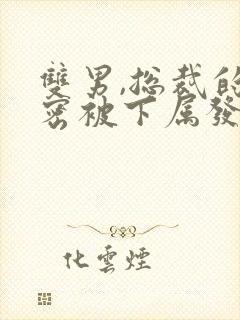 雙男,总裁的
密被下属發
化雲煙